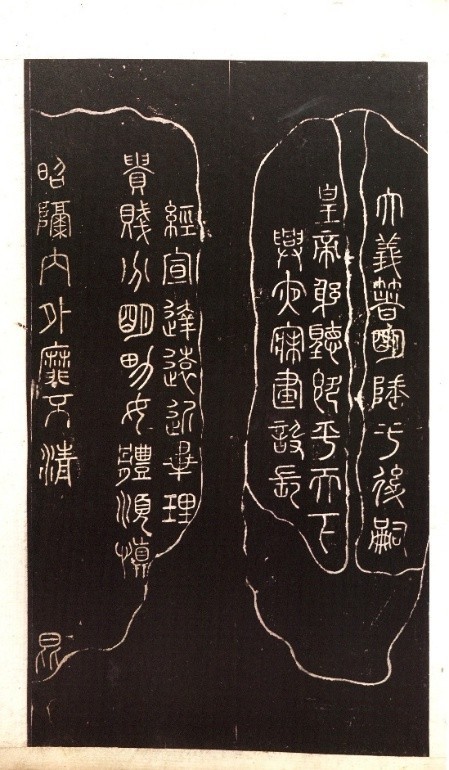 大義箸明陲于後嗣
皇帝躬聽既平天下
興夜寐建設長
經宣達遠近畢理
貴賤分明男女體順慎
昭隔內外靡不清
昆